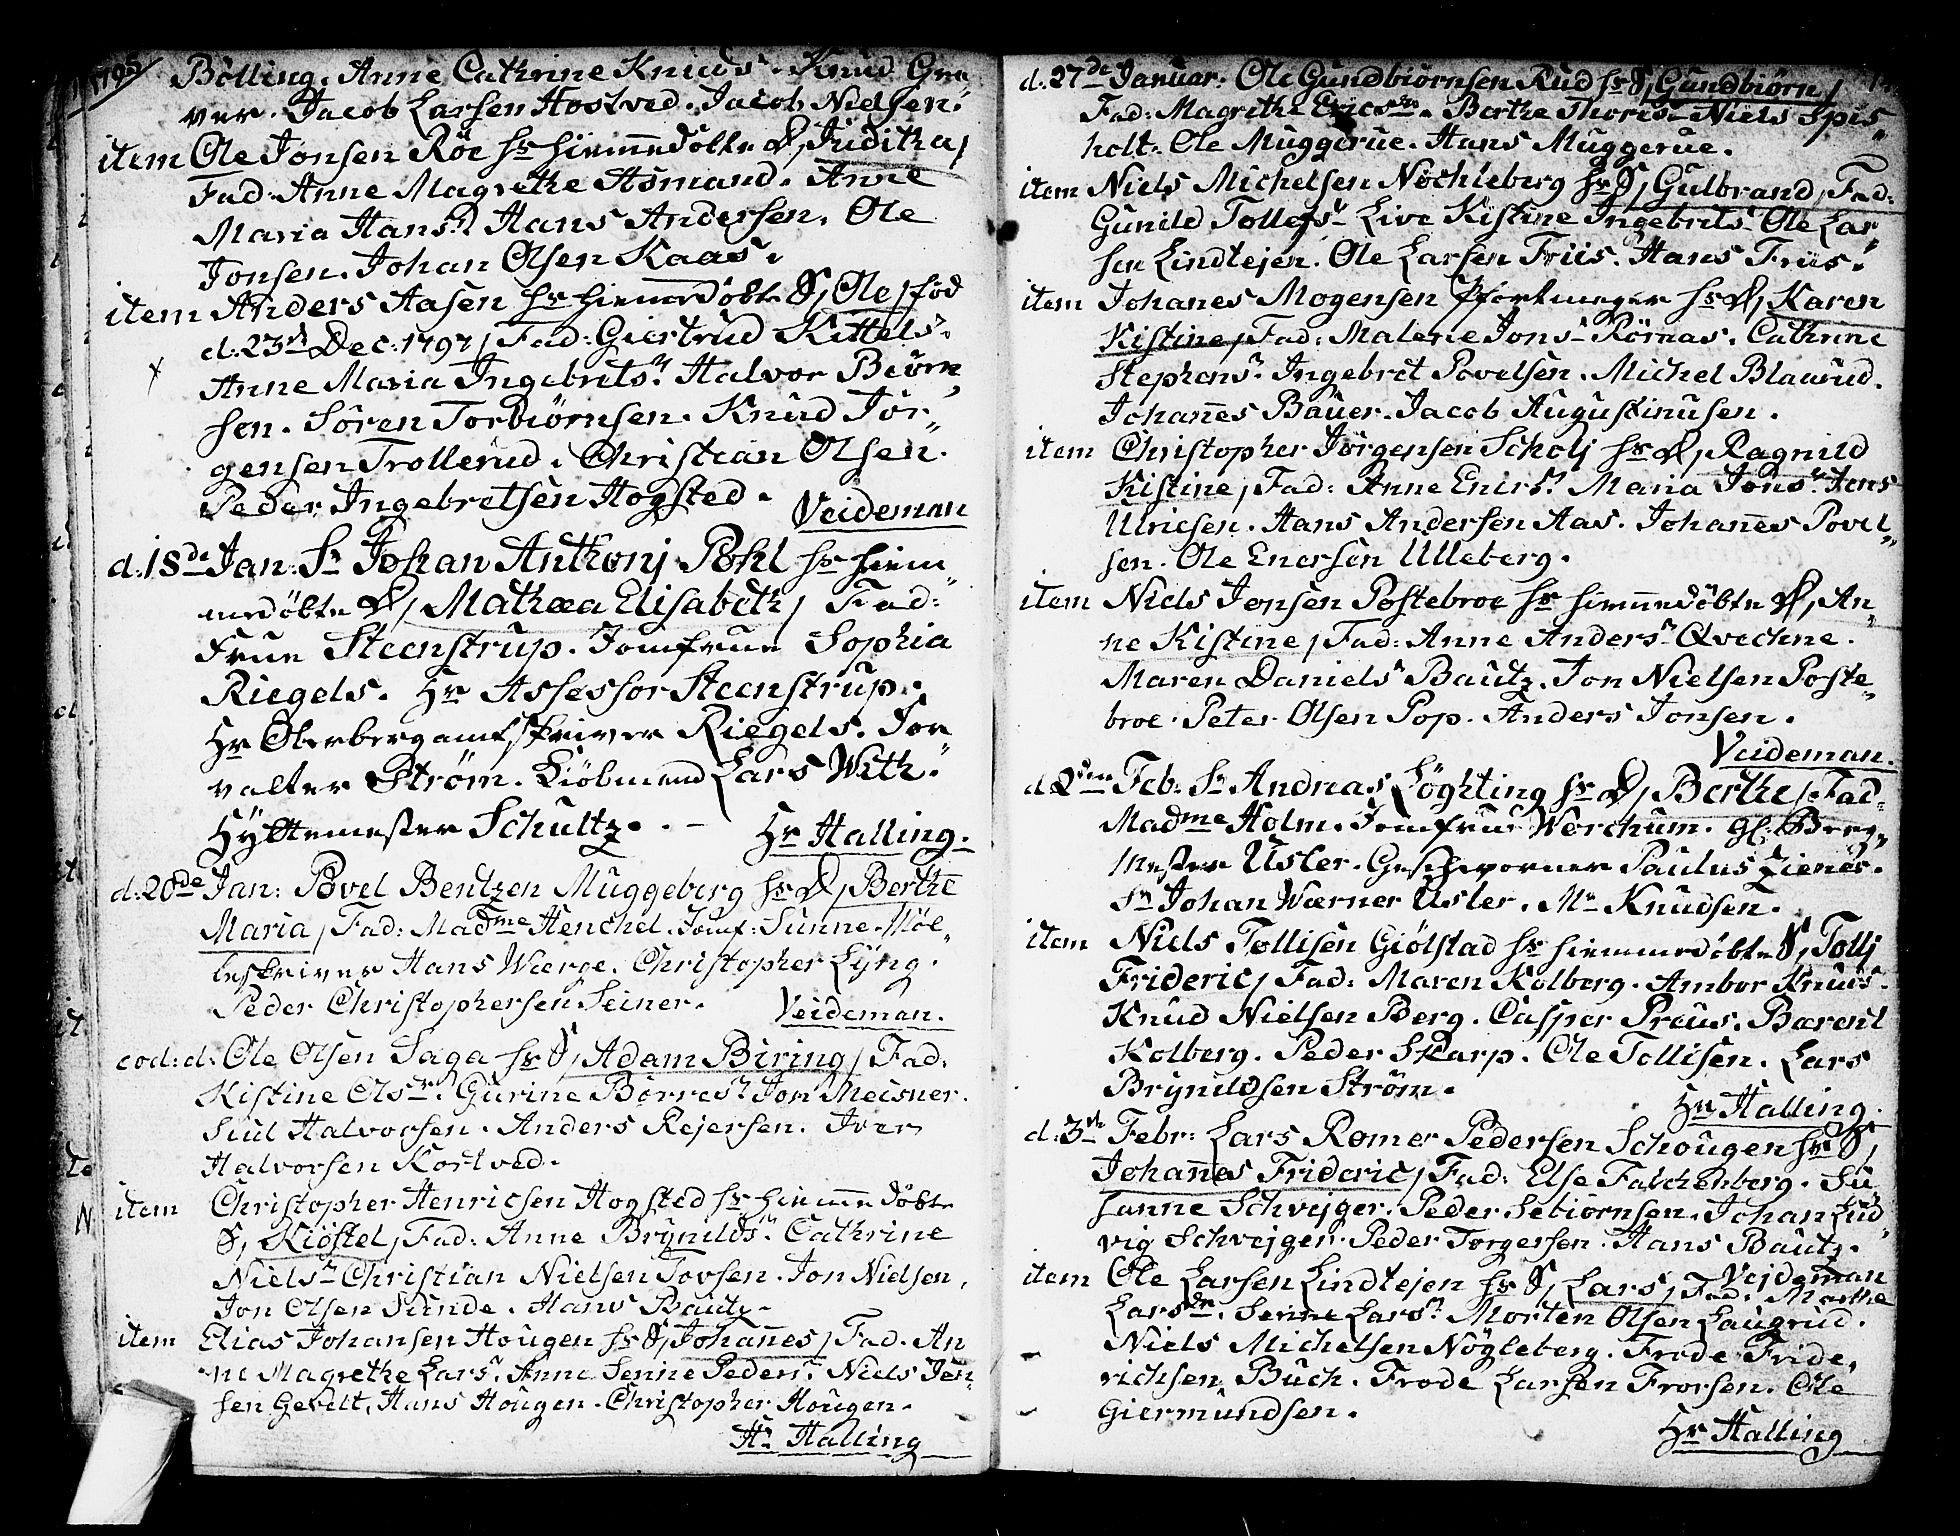 1795
Bölling. Anne Cathrine Knuds. Knud Gra
ver. Jacob Larsen Hostved. Jacob Nielsen.
item Ole Jonsen Röe hs hiemmedöbte D, Juditha,
Fad: Anne Magrethe Asmand. Anne
Maria Hans. Hans Andersen. Ole
Jonsen. Johan Olsen Kaas.
item Anders Aasen hs hiemmedöbte S, Ole, föd
d: 23de Dec: 1797, Fad: Giertrud Kittels.
Anne Maria Ingebrets. Halvor Biörn
sen. Sören Torbiörnsen. Knud Jör„
gensen Trollerud. Christian Olsen.
Peder Ingebretsen Hogsted.
Veideman
d: 18de Jan: Sr Johan Anthonj Pohl hs hiem
medöbte D, Mathæa Elisabeth, Fad:
Frue Steenstrup. Jomfrue Sophia
Riegels. Hr Assessor Steenstrup.
Hr Oberbergamtskriver Riegels. For
valter Ström. Kiöbmand Lars With.
Hyttemester Schultz. –
Hr Halling.
d: 20de Jan: Povel Bentzen Muggeberg hs D, Berthe
Maria, Fad: Madme Henchel. Jomf: Sunne. Möl„
leskriver Hans Wærge. Christopher Lÿng.
Peder Christophersen Seiner.
Veideman.
eod: d: Ole Olsen Saga hs S, Adam Biring, Fad:
Kistine Olsdr. Gurine Börres. Jon Meisner.
Siul Halvorsen. Anders Rejersen. Iver
Halvorsen Kortved.
item Christopher Henricsen Hogsted hs hiemmedöbte
S, Kiöstel, Fad: Anne Brÿnilds. Cathrine
Niels. Christian Nielsen Tovsen. Jon Nielsen.
Jon Olsen Sunde. Hans Bautz.
item Elias Johansen Hougen hs S, Johannes, Fad: An
ne Magrethe Lars. Anne Senne Peders. Niels Jen„
sen Gevelt. Hans Hougen. Christopher Hougen.
Hr Halling
d: 27de Januar: Ole Gundbiörnsen Rud hs S, Gundbiörn,
Fad: Magrethe Ericsdr. Berthe Thores. Niels Spis„
holt. Ole Muggerue. Hans Muggerue.
item Niels Michelsen Nöchleberg hs S, Gulbrand, Fad:
Gunild Tollefs. Live Kistine Ingebrits. Ole Lar„
sen Lindtejen. Ole Larsen Friis. Hans Friis.
item Johanes Mogensen hs D, Karen
Kistine, Fad: Malene Jons. Römaas. Cathrine
Stephens. Ingebret Povelsen. Michel Blaarud.
Johannes Bauer. Jacob Augustinusen.
item Christopher Jörgensen Scholj hs D, Ragnild
Kistine, Fad: Anne Eners. Maria Jons. Jens
Ulricsen. Hans Andersen Aas. Johannes Povel„
sen. Ole Enersen Ulleberg.
item Niels Jonsen Postebroe hs hiemmedöbte D, An„
ne Kistine, Fad: Anne Anders. Qvechne.
Maren Daniels Bautz. Jon Nielsen Poste„
broe. Peter Olsen Pop. Anders Jonsen.
Veideman.
d: 2den Feb: Sr Andreas Löghting hs D, Berthe, Fad:
Madme Holm. Jomfrue Werchum. gl. Berg„
mester Usler. Geschworner Paulus Zienes.
Sr Johan Wærner Usler. Mr Knudsen.
item Niels Tollisen Giölstad hs hiemmedöbte S, Tollj
Frideric, Fad: Maren Kolberg. Ambor Knuds.
Knud Nielsen Berg. Casper Preus. Barent
Kolberg. Peder Skarp. Ole Tollisen. Lars
Brÿnildsen Ström.
Hr Halling.
d: 3de Febr: Lars Romer Pedersen Schougen hs S,
Johannes Frideric, Fad: Else Falchenberg. Su
sanne Schvejger. Peder Sebiörnsen. Johan Lud
vig Schvejger. Peder Torgersen. Hans Bautz.
Vejdeman
item Ole Larsen Lindtejen hs S, Lars, Fad: Marthe
Larsdr. Senne Lars. Morten Olsen Laugrud.
Niels Michelsen Nögleberg. Frode Fride„
richsen Buch. Frode Larsen Frorsen. Ole
Giermundsen.
Hr Halling